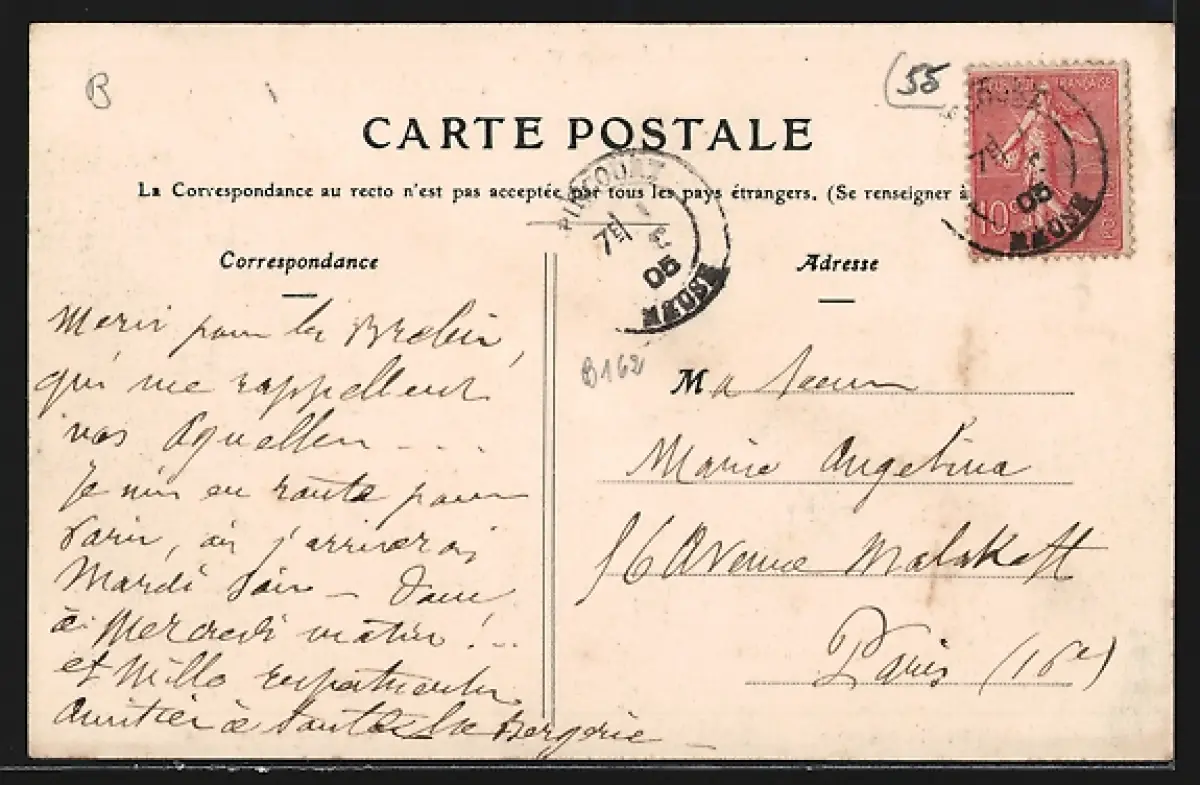 B
55
CARTE POSTALE
La Correspondance au recto n'est pas acceptée par tous les pays étrangers. (Se renseigner à
RÉPUBLIQUE FRANÇAISE
10c
POSTES
7E
05
MEUSE
PIERR
7E
05
MEUSE
Correspondance
Merci pour les Brebis,
qui me rappellent
vos Aquelles ...
Je suis en route pour
Paris, où j'arriverai
Mardi soir - Donc
à Mercredi matin !..
et Mille respectueuses
amitiés à toute la Bergerie -
Adresse
B162
Ma Soeur
Marie Angelina
Avenue Malakoff
Paris (16e)